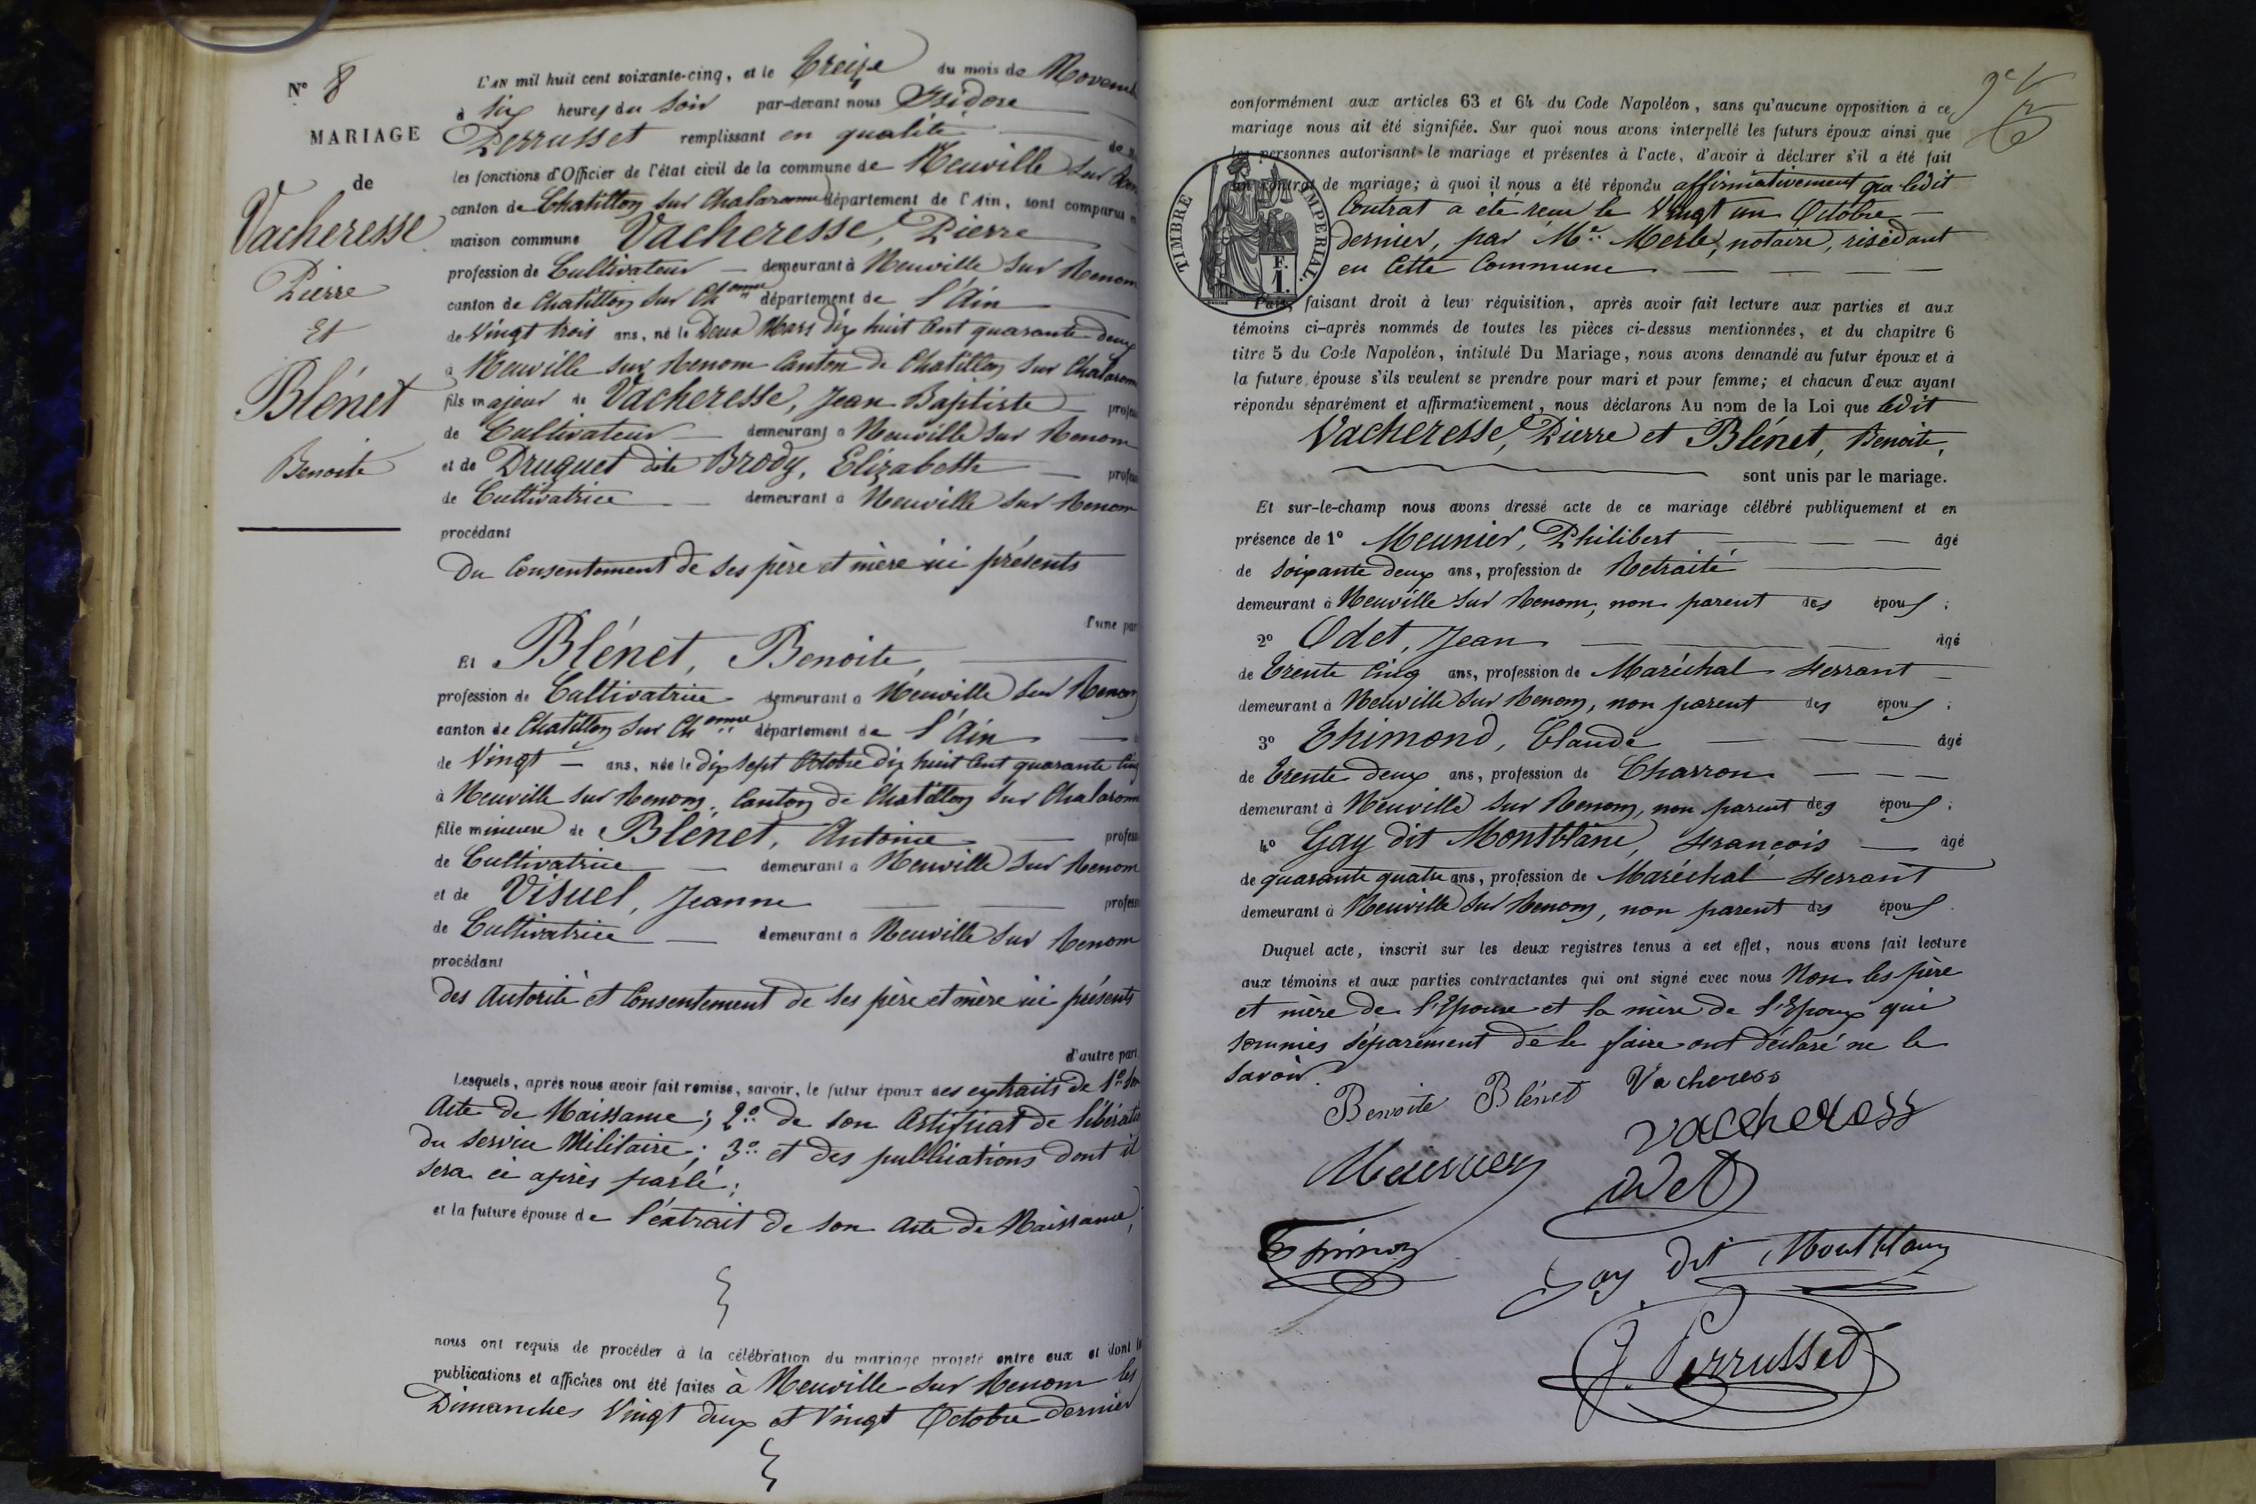 N° 8
MARIAGE
de
Vacheresse
Pierre
Et
Blénet
Benoite
L'AN mil huit cent soixante-cinq, et le Treize du mois de Novemb
à six heures du soir par-devant nous Isidore
Perrusset remplissant en qualité de
les fonctions d'Officier de l'état civil de la commune de Neuville sur Ren
canton de Chatillon sur Chalaronne département de l'Ain, sont comparus
maison commune Vacheresse, Pierre
profession de Cultivateur demeurant à Neuville sur Renom
canton de Chatillon sur Ch onne département de l'Ain
de Vingt trois ans, né le Deux Mars dix huit Cent quarante deux
à Neuville sur Renom Canton de Chatillon sur Chalaronn
fils majeur de Vacheresse, Jean Baptiste profess
de Cultivateur demeurant à Neuville sur Renom
et de Druguet dite Brody, Elizabeth profess
de Cultivatrice demeurant à Neuville sur Renom
procédant
Du Consentement de ses père et mère ici présents
l'une part
Et Blénet, Benoite,
profession de Cultivatrice demeurant à Neuville sur Renom
canton de Chatillon sur Ch onne département de l'Ain
de Vingt ans, née le dix sept Octobre dix huit Cent quarante Cinq
à Neuville sur Renom, Canton de Chatillon sur Chalaronn
fille mineure de Blénet, Antoine profess
de Cultivatrice demeurant à Neuville sur Renom
et de Visuel, Jeanne profess
de Cultivatrice demeurant à Neuville sur Renom
procédant
des Autorité et Consentement de ses père et mère ici présents
d'autre part
Lesquels, après nous avoir fait remise, savoir, le futur époux des extraits de 1° son
Acte de Naissance; 2° de son Certificat de libératio
du service Militaire; 3° et des publications dont il
sera ci après parlé;
et la future épouse de l'extrait de son acte de Naissance;
nous ont requis de procéder à la célébration du mariage projeté entre eux et dont le
publications et affiches ont été faites à Neuville sur Renom les
Dimanches Vingt deux et Vingt Octobre dernier
conformément aux articles 63 et 64 du Code Napoléon, sans qu'aucune opposition à ce
mariage nous ait été signifiée. Sur quoi nous avons interpellé les futurs époux ainsi que
les personnes autorisant le mariage et présentes à l'acte, d'avoir à déclarer s'il a été fait
un contrat de mariage; à quoi il nous a été répondu affirmativement que ledit
TIMBRE IMPERIAL.
F. 1.
Contrat a été reçu le Vingt un Octobre
dernier, par Me Merle, notaire, résidant
en Cette Commune
faisant droit à leur réquisition, après avoir fait lecture aux parties et aux
témoins ci-après nommés de toutes les pièces ci-dessus mentionnées, et du chapitre 6
titre 5 du Code Napoléon, intitulé Du Mariage, nous avons demandé au futur époux et à
la future épouse s'ils veulent se prendre pour mari et pour femme; et chacun d'eux ayant
répondu séparément et affirmativement, nous déclarons Au nom de la Loi que ledit
Vacheresse, Pierre et Blénet, Benoite,
sont unis par le mariage.
Et sur-le-champ nous avons dressé acte de ce mariage célébré publiquement et en
présence de 1° Meunier, Philibert âgé
de soixante deux ans, profession de Retraité
demeurant à Neuville sur Renom, non parent des époux;
2° Odet, Jean âgé
de Trente Cinq ans, profession de Maréchal Ferrant
demeurant à Neuville sur Renom, non parent des époux;
3° Thimond, Claude âgé
de Trente deux ans, profession de Charron
demeurant à Neuville sur Renom, non parent des époux;
4° Gay dit Montblanc, François âgé
de quarante quatre ans, profession de Maréchal Ferrant
demeurant à Neuville sur Renom, non parent des époux.
Duquel acte, inscrit sur les deux registres tenus à cet effet, nous avons fait lecture
aux témoins et aux parties contractantes qui ont signé avec nous Non les père
et mère de l'Epouse et la mère de l'Epoux qui
sommés séparément de le faire ont déclaré ne le
savoir.
Benoite Blénet Vacheress
Vaccheress
Meunier
Odet
Thimon
Gay dit Montblanc
J. Perrusset